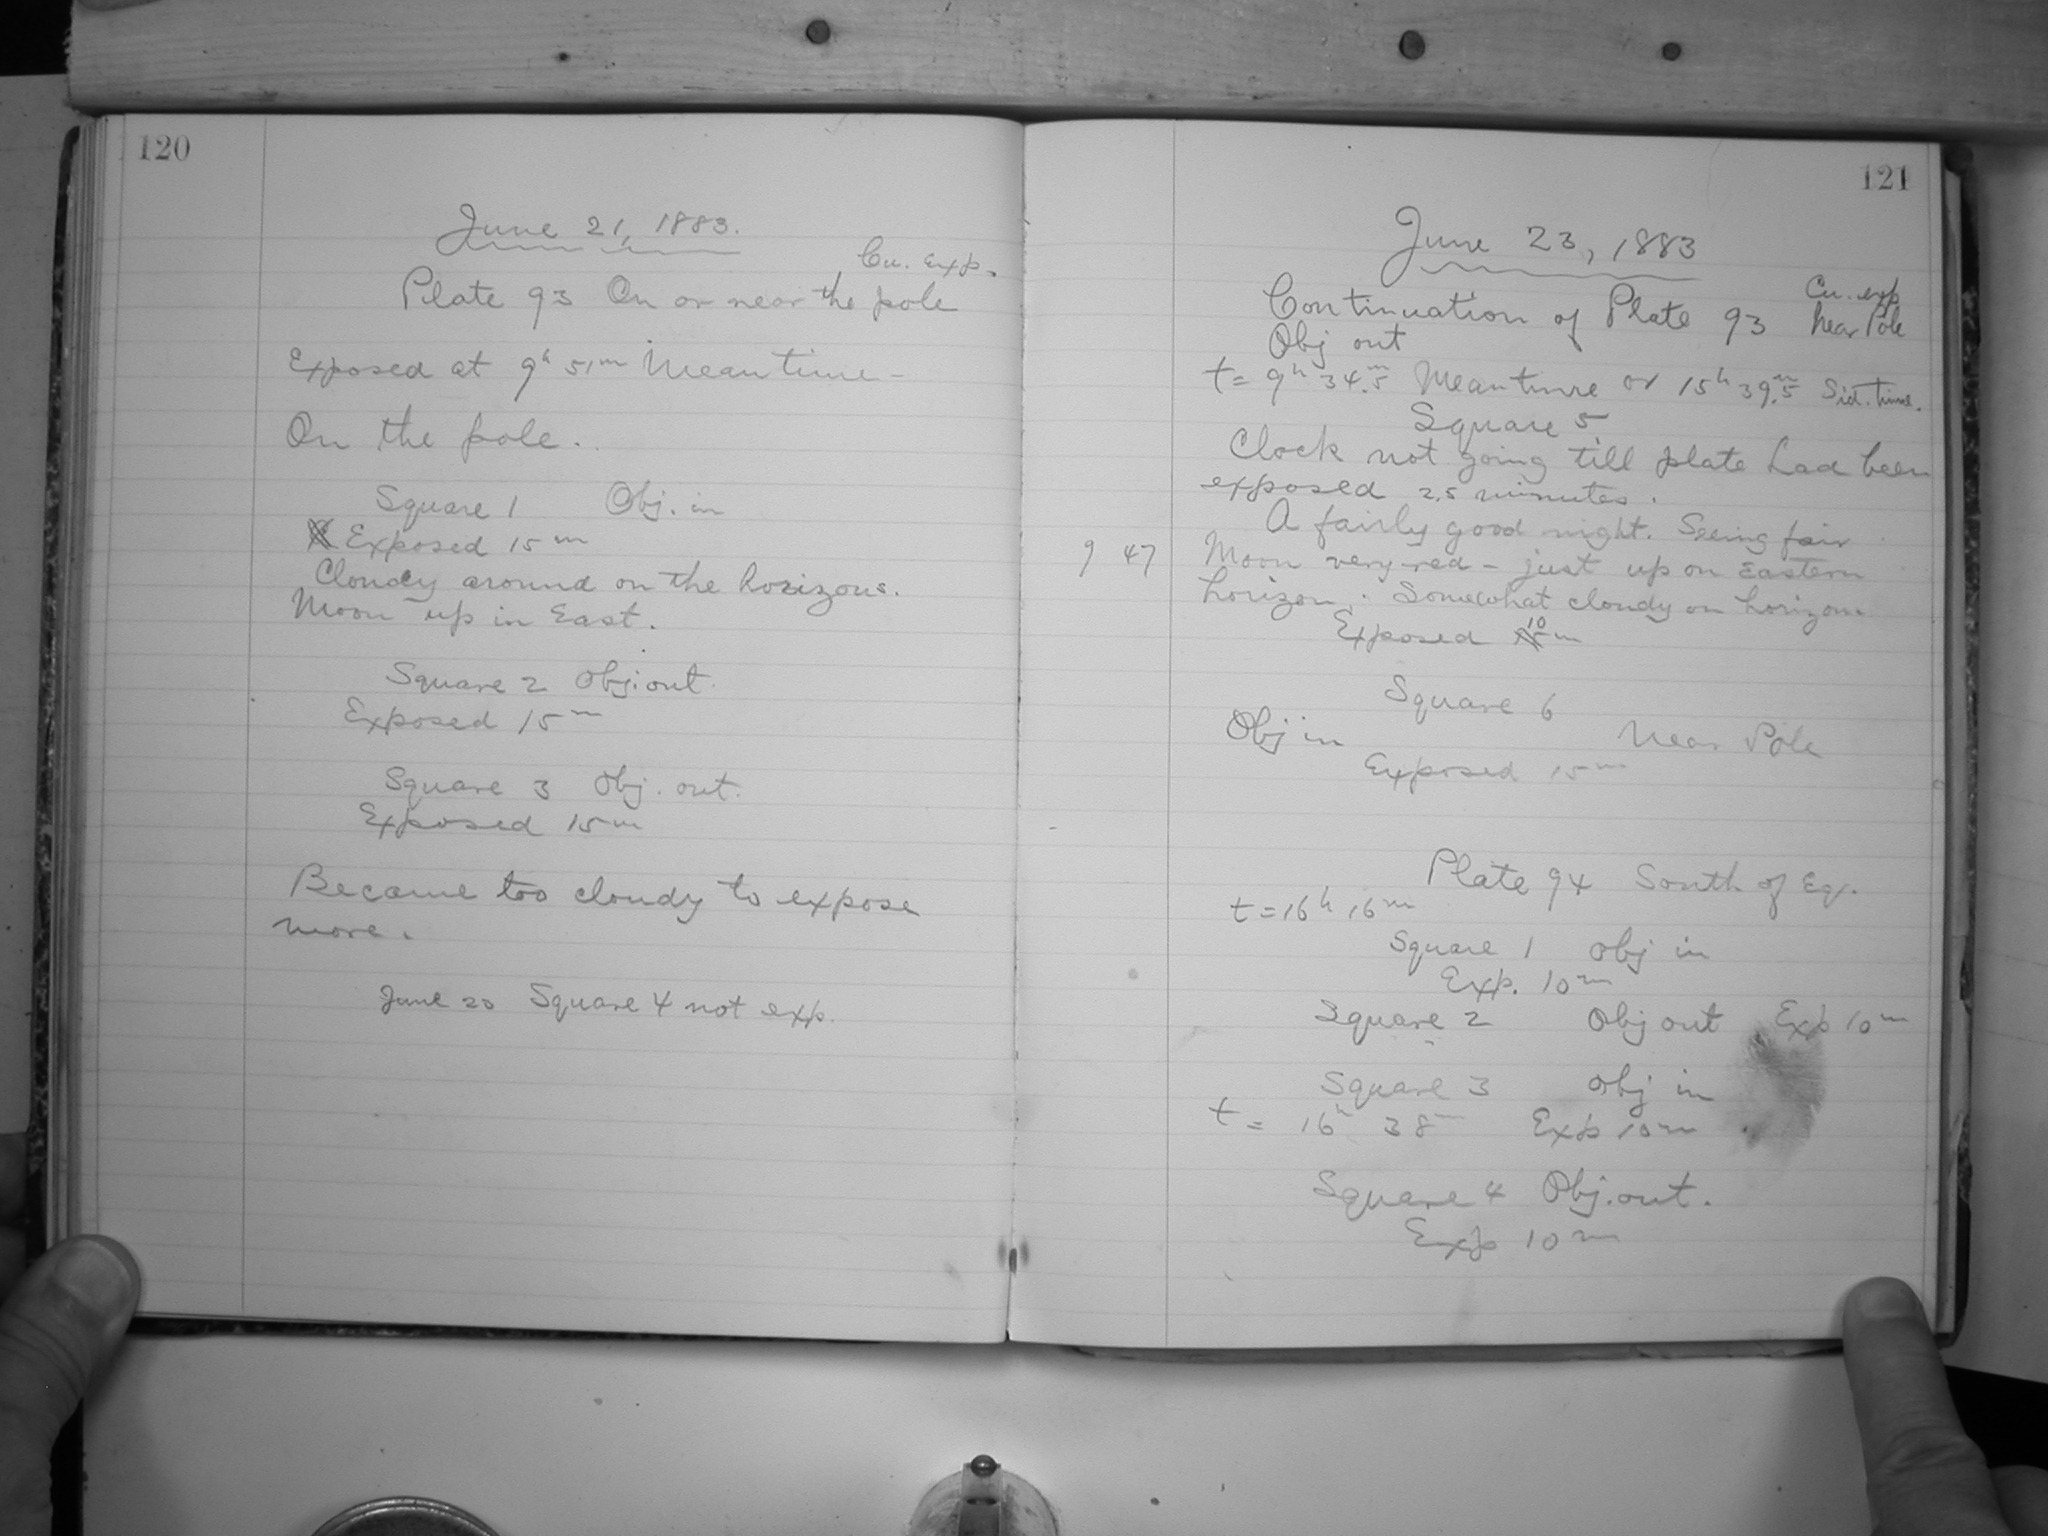 120
June 21, 1883.
Cu. exp.
Plate 93 On or near the pole
Exposed at 9h 51m Mean time
On the pole.
Square 1 Obj. in
Exposed 15m
Cloudy around on the horizons.
Moon up in East.
Square 2 Obj. out
Exposed 15m
Square 3 Obj. out.
Exposed 15m
Became too cloudy to expose
more.
June 20 Square 4 not exp.
121
June 23, 1883
Cu. exp
Continuation of Plate 93 Near Pole
Obj out
t = 9h 34.5m Mean time or 15h 39.5m Sid. time.
Square 5
Clock not going till plate had been
exposed 2.5 minutes.
A fairly good night. Seeing fair
9 47 Moon very red - just up on Eastern
horizon. Somewhat cloudy on horizon
Exposed 10m
Square 6
Obj in Near Pole
Exposed 15m
Plate 94 South of Eq.
t = 16h 16m
Square 1 Obj in
Exp. 10m
Square 2 Obj out Exp 10m
Square 3 Obj in
t = 16h 38m Exp 10m
Square 4 Obj. out.
Exp 10m